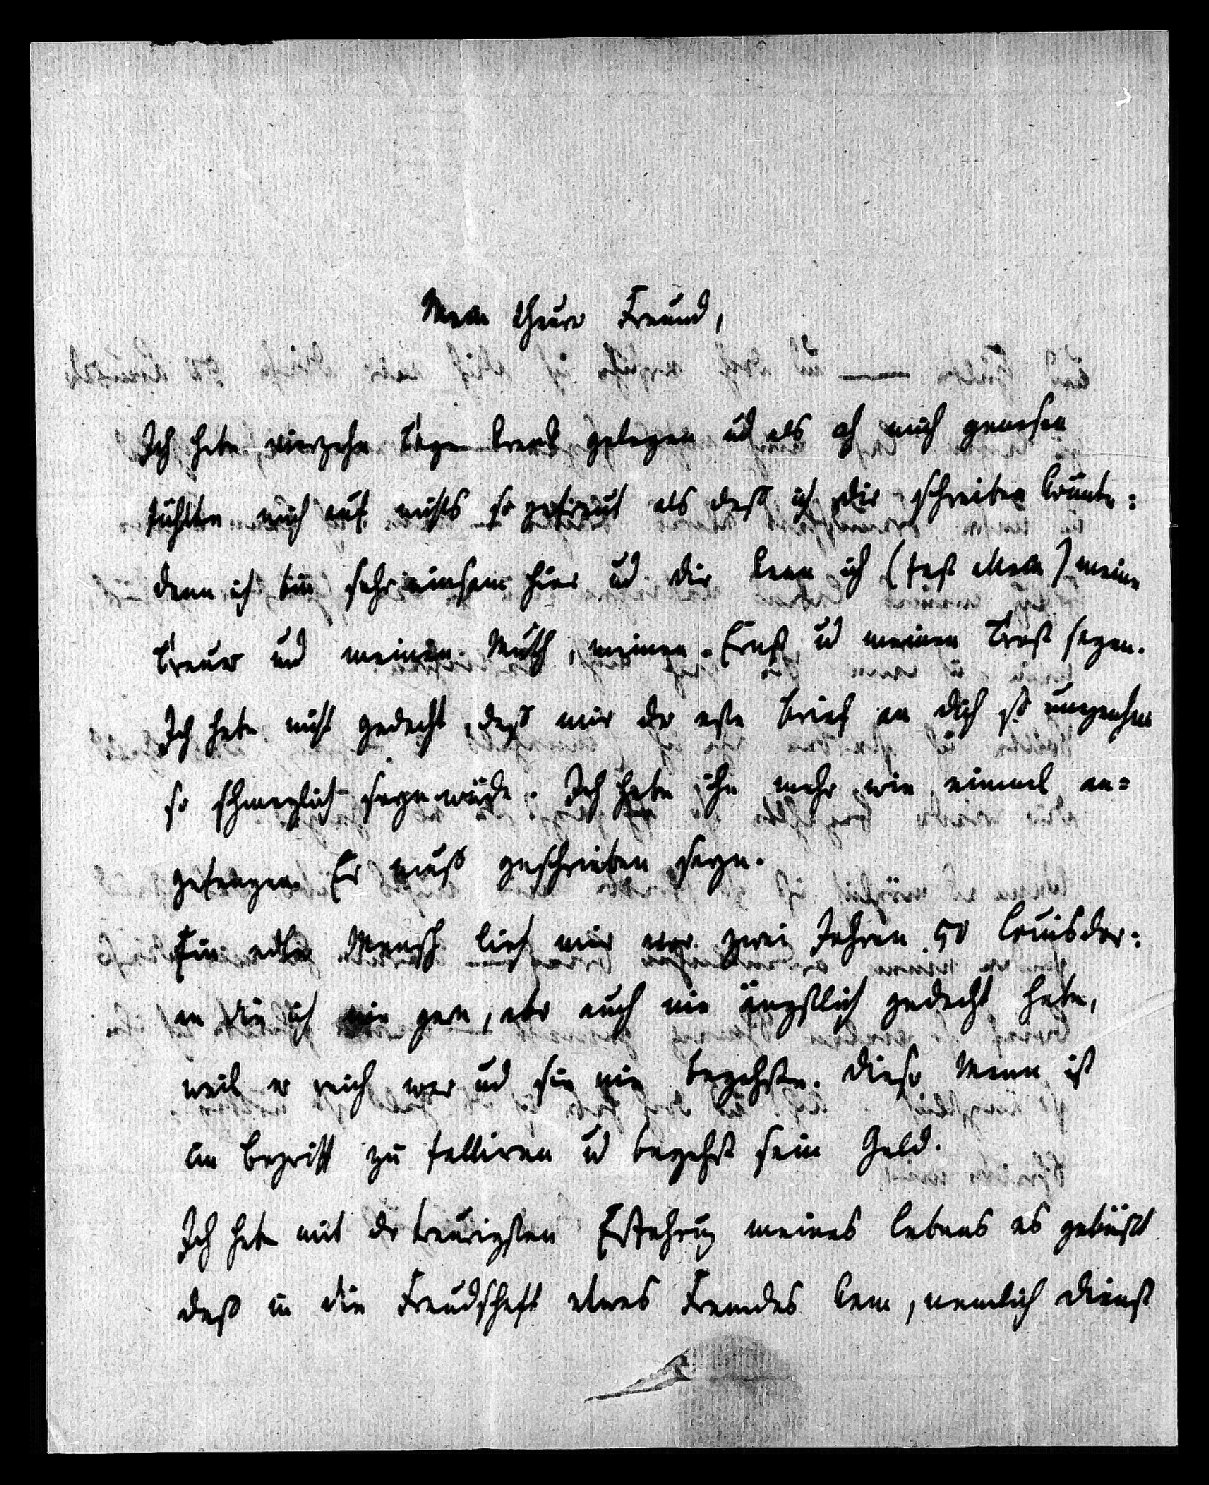 Mein theurer Freund,
Ich habe vierzehn Tage krank gelegen ud als ich mich genesen
fühlte mich auf nichts so gefreut als daß ich dir schreiben konnte:
denn ich bin sehr einsam hier ud dir kann ich (fast allein) meine
Treue ud meinen Muth, meinen Ernst ud meinen Trost sagen.
Ich habe nicht gedacht, daß mir der erste Brief an dich so unangenehm
so schmerzlich seyn würde. Ich habe ihn mehr wie einmal an=
gefangen. Er muß geschrieben seyn.
Ein edler Mensch lieh mir vor zwei Jahren 50 Louisdor:
an die ich nie gern, aber auch nie ängstlich gedacht habe,
weil er reich war ud sie nie begehrte. Dieser Mann ist
im Begriff zu falliren ud begehrt sein Geld.
Ich habe mit der traurigsten Erfahrung meines Lebens es gebüßt
daß in die Freudschaft etwas Fremdes kam, nemlich Dienst